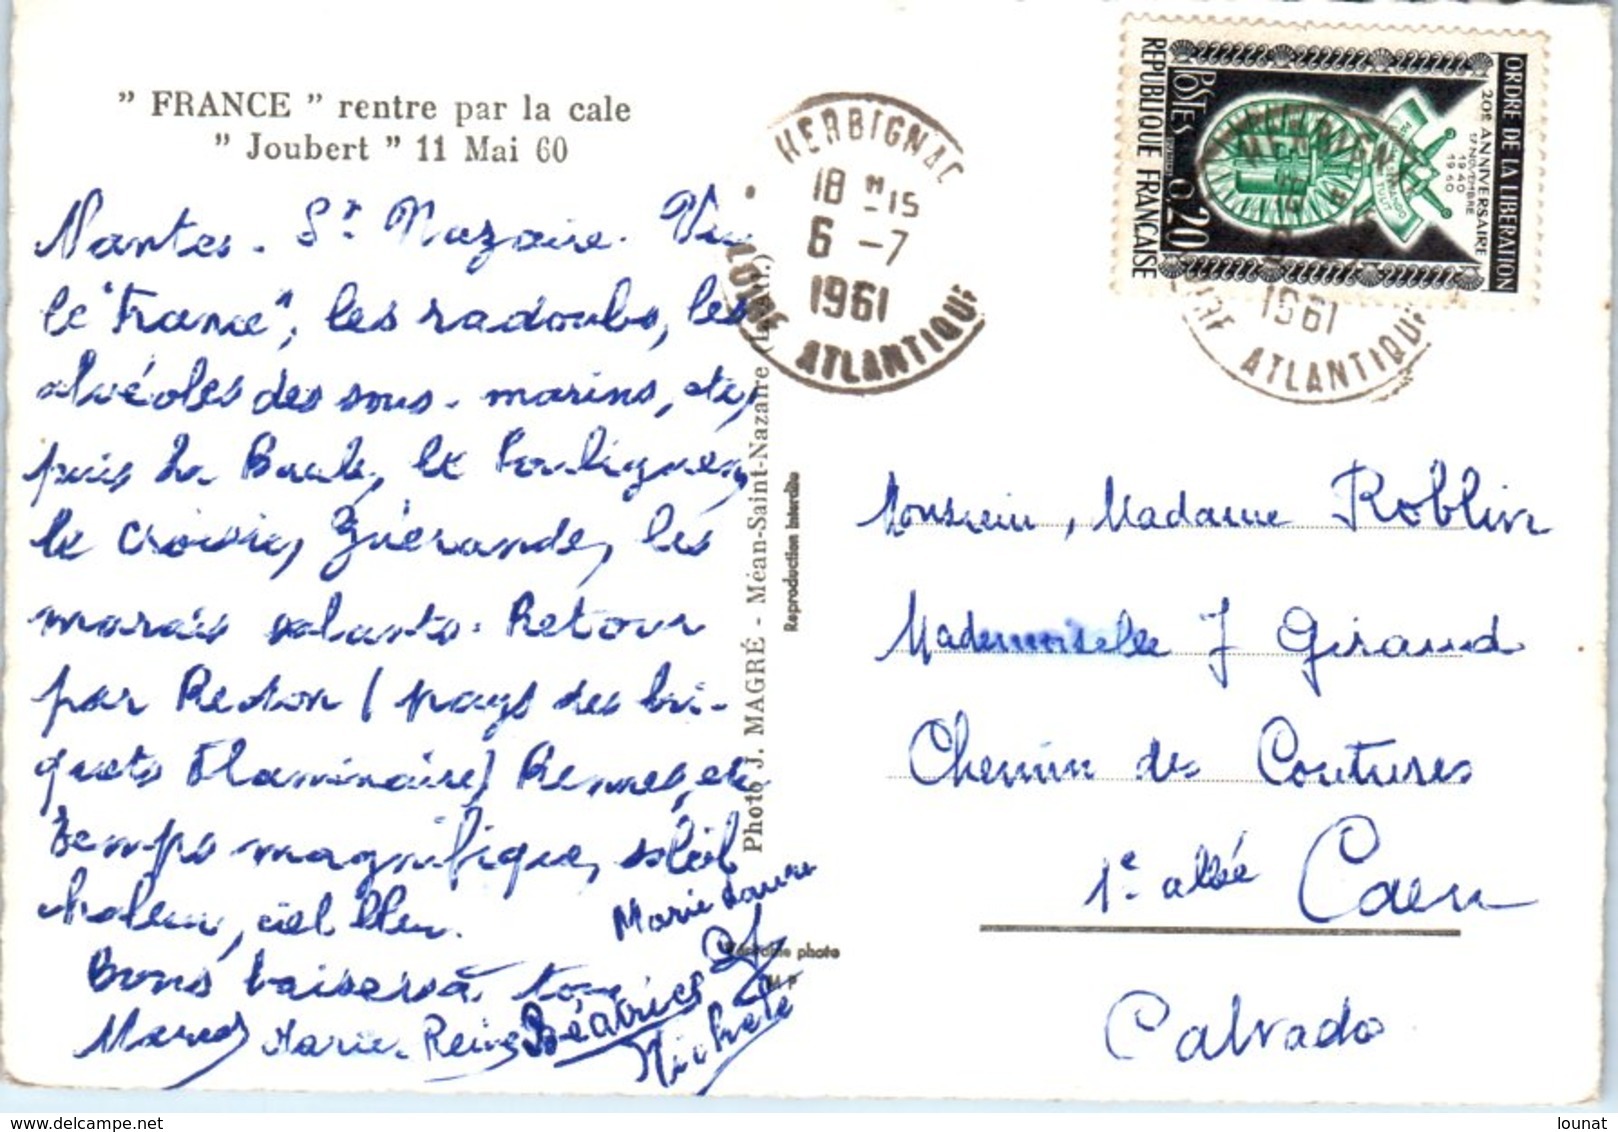 " FRANCE " rentre par la cale
" Joubert " 11 Mai 60
Nantes. St Nazaire. Vu
le "France", les radoubs, les
alvéoles des sous-marins, etc,
puis La Baule, le Pouliguen,
le Croisic, Guérande, les
marais salants. Retour
par Redon (pays des bri-
quets Flaminaire) Rennes, etc
Temps magnifique, soleil
chaleur, ciel bleu.
Bons baisers à tous
Marie Laure
Marcel Marie-Reine Béatrice et
Michèle
Photo J. MAGRÉ - Méan-Saint-Nazaire (L.-Atl.)
Reproduction interdite
Véritable photo
M P
HERBIGNAC
18 H 15
6 -7
1961
LOIRE ATLANTIQUE
ORDRE DE LA LIBERATION
20E ANNIVERSAIRE
17 NOVEMBRE
1940
1960
POSTES 0,20
REPUBLIQUE FRANÇAISE
HERBIGNAC
1961
LOIRE ATLANTIQUE
Monsieur, Madame Roblin
Mademoiselle J Giraud
Chemin des Coutures
1e allée Caen
Calvados
lounat